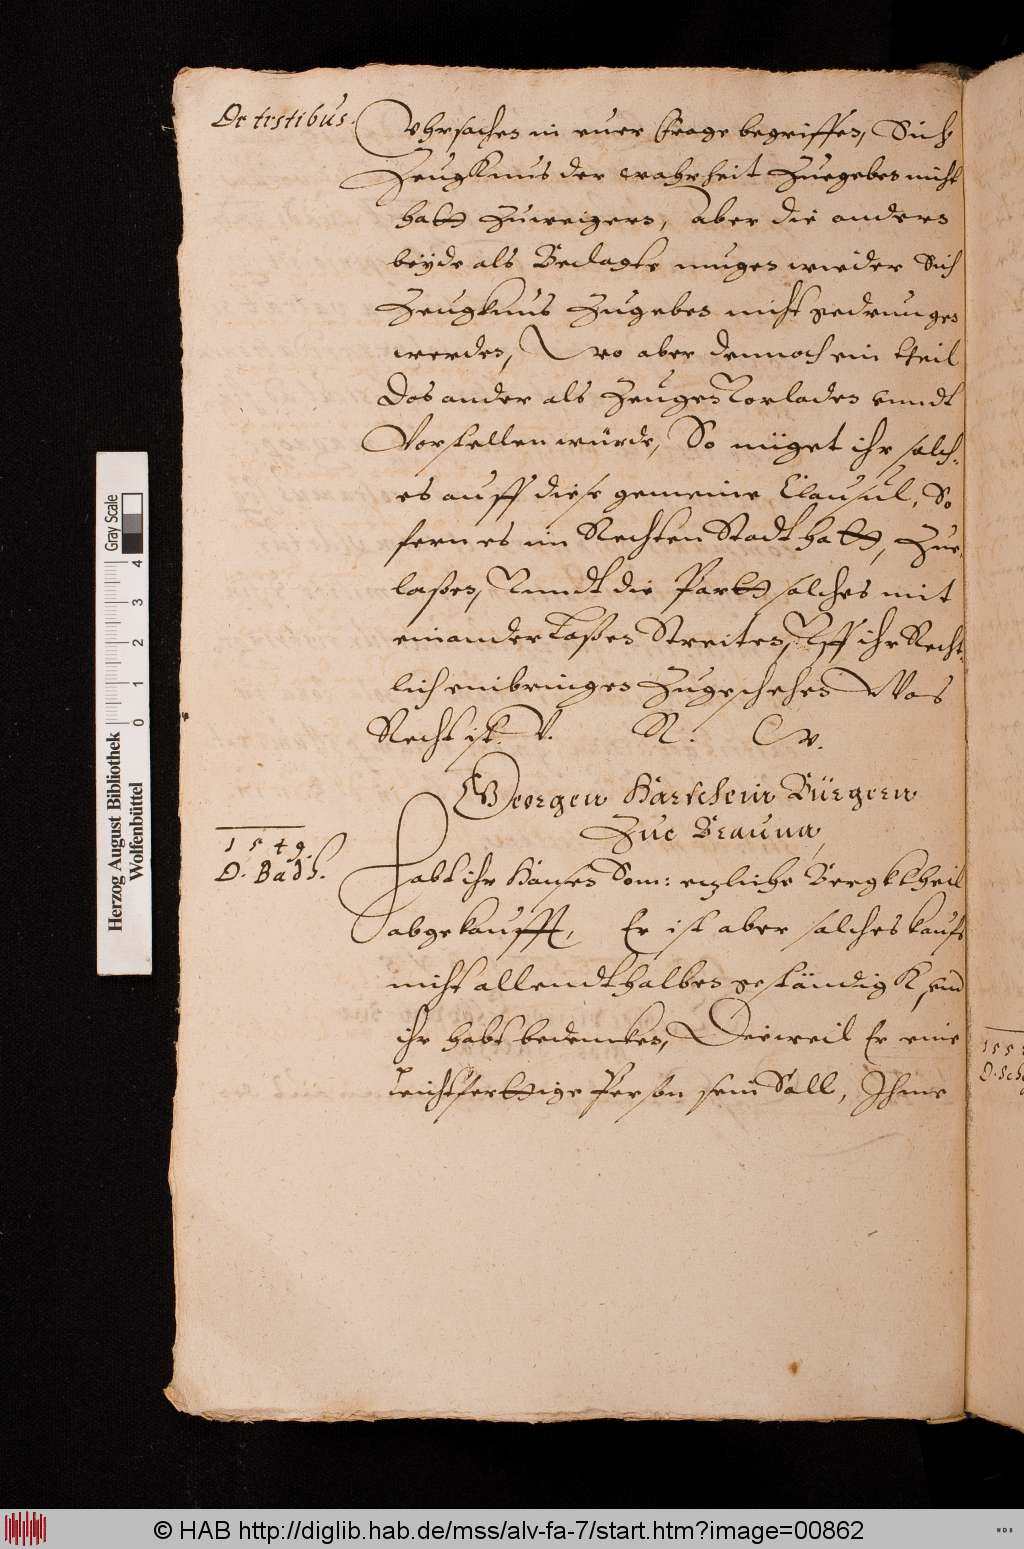 De testibus.
Uhrsachen in euer Frage begriffen, Sich
Zeugknus der wahrheit Zuegeben nicht
hatt Zuweigern, Aber die andern
beyde als Beclagte mugen wieder Sich
Zeugknus Zugeben nicht gedrungen
werden, Wo aber dennoch ein theil
Das ander als Zeugen Vorladen vnndt
Vorstellen würde, So müget ihr solch-
es auff diese gemeine Clausul, So
fern es im Rechten Stadt hatt, Zue
laßen, Vnndt die Partt solches mit
einander laßen Streiten, Vff ihr Recht-
lich einbringen Zugeschehen Was
Recht ist. V. R. W.
Georgen Hartschein Bürgern
Zue Brauna,
1549.
D. Badh.
Habt ihr Hansen Som: etzliche Bergktheil
abgekaufft, Er ist aber solches kaufs
nicht allendthalben geständigk, vnd
ihr habt bedencken, Dieweil Er eine
leichtferttige Person sein Soll, Ihme
D. Sch
Herzog August Bibliothek
Wolfenbüttel
Gray Scale
0 1 2 3 4
© HAB http://diglib.hab.de/mss/alv-fa-7/start.htm?image=00862